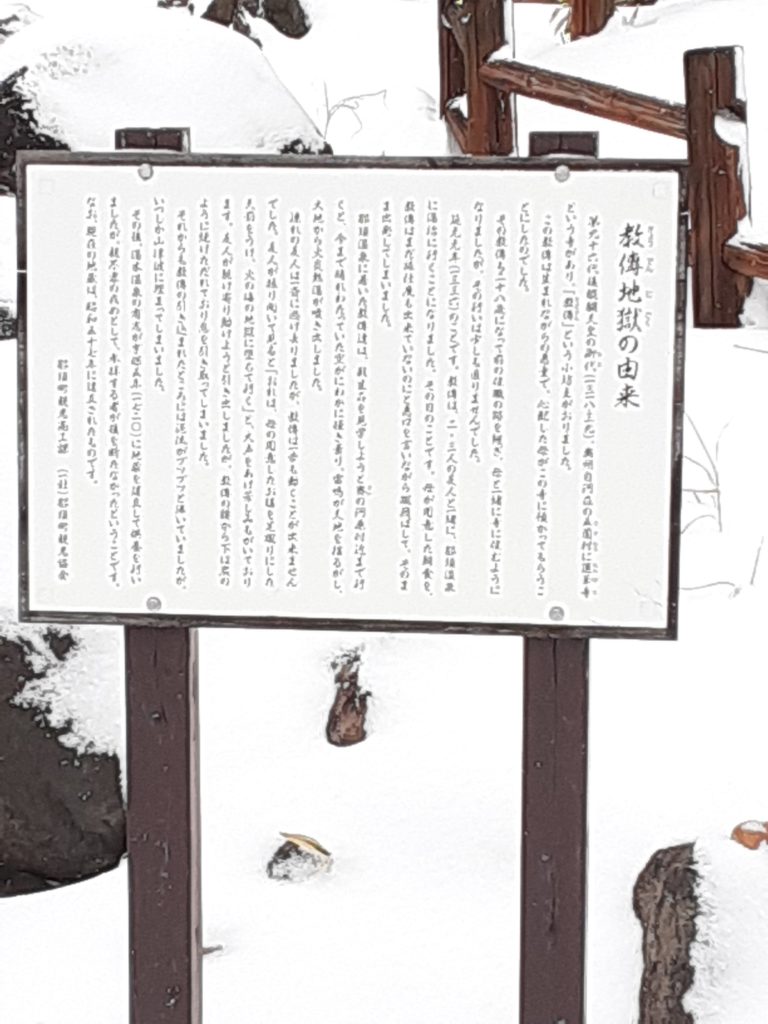 教傳地獄の由来
きょうでんじごく
第九十六代後醍醐天皇の御代(一三一八~三九)、奥州白河在の五箇村に蓮華寺
という寺があり、「教傳」という小坊主がおりました。
この教傳は生まれながらの不良で、心配した母がこの寺に預かってもらうこ
とにしたのでした。
その教傳も二十八歳になって前の住職の跡を継ぎ、母と一緒に寺に住むように
なりましたが、その行いは少しも直りませんでした。
延元元年(一三三六)のことです。教傳は、二・三人の友人と一緒に、那須温泉
に湯治に行くことになりました。その日のことです。母が用意した朝食を、
教傳はまだ旅仕度も出来ていないのにと悪口を言いながら蹴飛ばして、そのま
ま出発してしまいました。
那須温泉に着いた教傳達は、殺生石を見学しようと賽の河原付近まで行
くと、今まで晴れわたっていた空がにわかに掻き曇り、雷鳴が天地を揺るがし、
大地から火炎熱湯が噴き出しました。
連れの友人は一目散に逃げ去りましたが、教傳は一歩も動くことが出来ません
でした。友人が振り向いて見ると「おれは、母の用意したお膳を足蹴りにした
天罰をうけ、火の海の地獄に堕ちて行く」と、大声をあげ苦しみもがいており
ます。友人が駆け寄り助けようと引き出しましたが、教傳の腰から下は炭の
ように焼けただれており息を引き取ってしまいました。
それからも教傳の引き込まれたところには泥流がブツブツと沸いていましたが、
いつしか山津波に埋まってしまいました。
その後、湯本温泉の有志が享保五年(一七二〇)に地蔵を建立して供養を行い
ましたが、親不孝のためとして、参拝する者が後を断たなかったということです。
なお、現在の地蔵は、昭和五十七年に建立されたものです。
那須町観光商工課 (一社)那須町観光協会